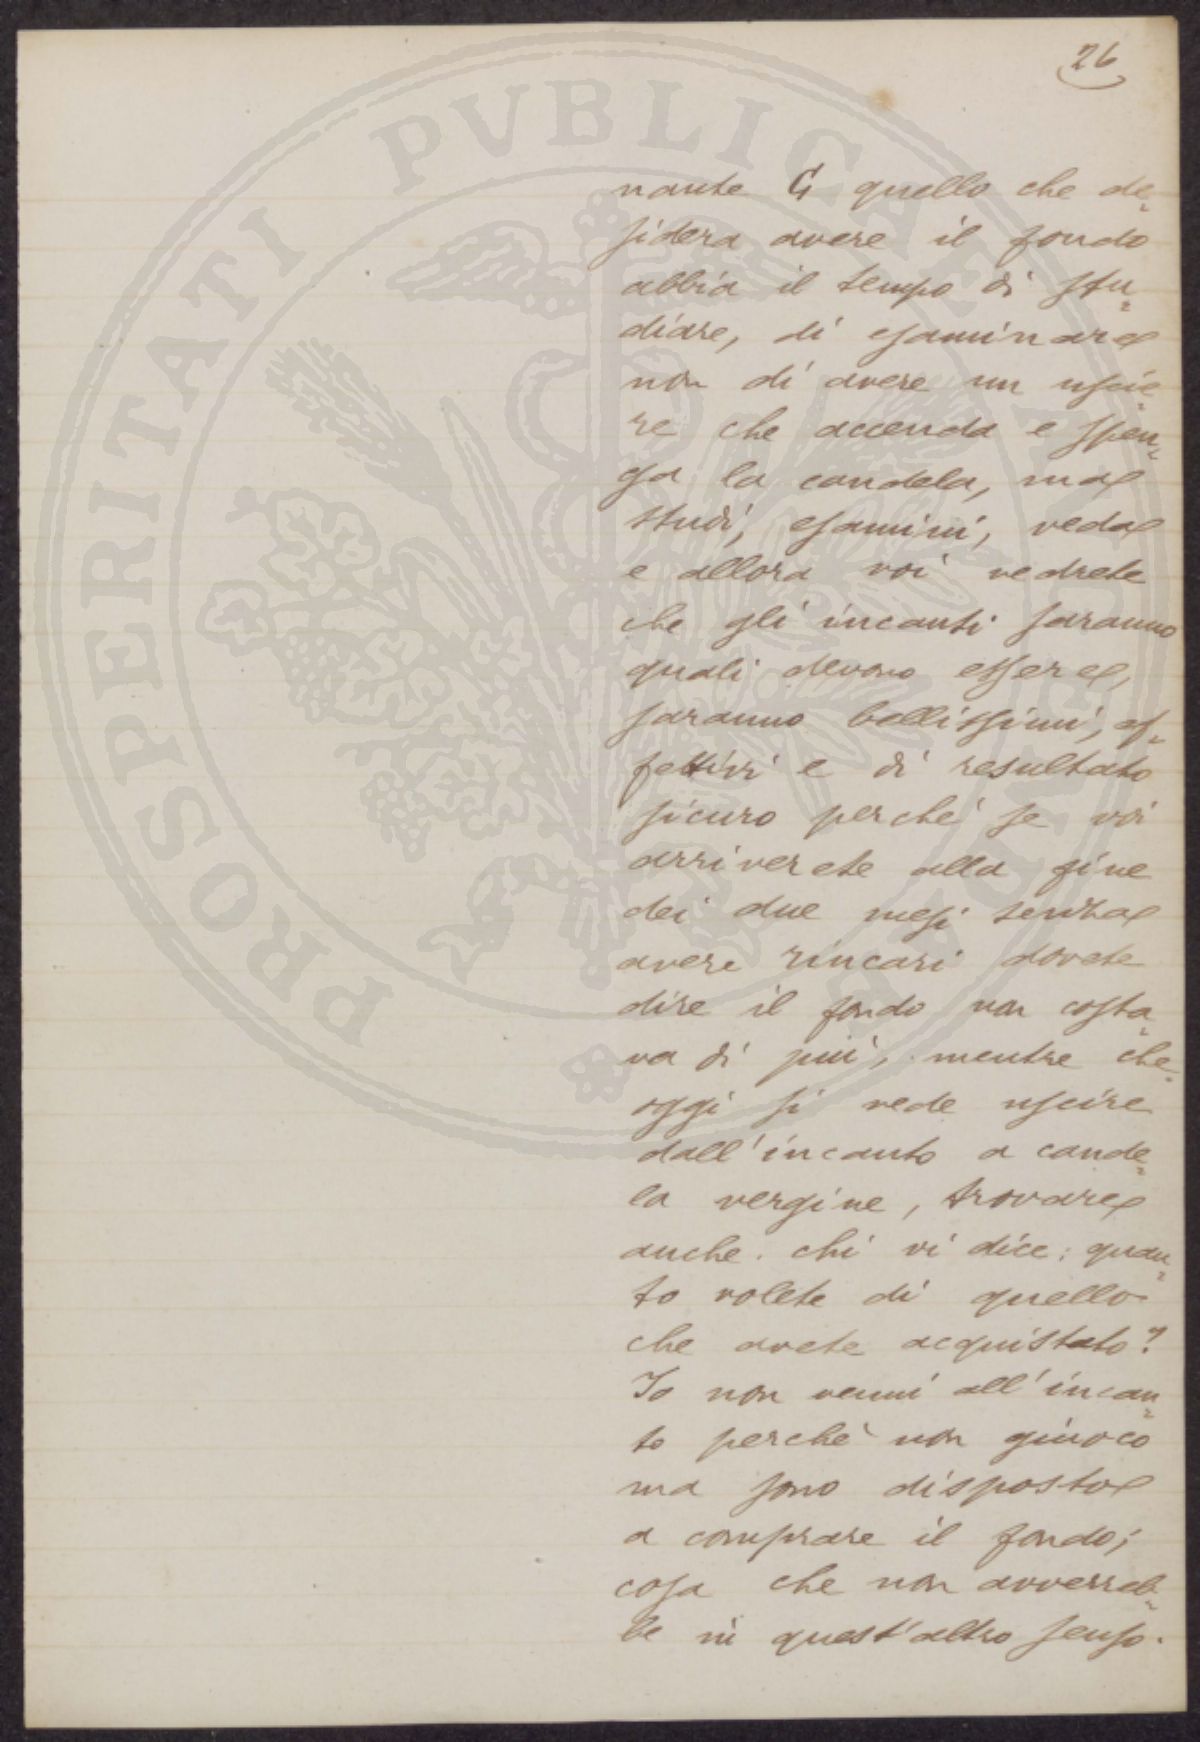 26
nante G quello che de=
sidera avere il fondo
abbia il tempo di stu=
diare, di esaminare
non di avere un uscie=
re che accenda e spen=
ga la candela, ma
studi, esamini, veda
e allora voi vedrete
che gli incanti saranno
quali devono essere,
saranno bellissimi, ef=
fettivi e di resultato
sicuro perché se voi
arriverete alla fine
dei due mesi senza
avere rincari dovete
dire il fondo non costa=
va di più, mentre che
oggi si vede uscire
dall'incanto a cande=
la vergine, trovare
anche chi vi dice: quan=
to volete di quello
che avete acquistato?
Io non venni all'incan=
to perchè non giuoco
ma sono disposto
a comprare il fondo;
cosa che non avverreb=
be in quest'altro senso.
PROSPERITATI PVBLICAE